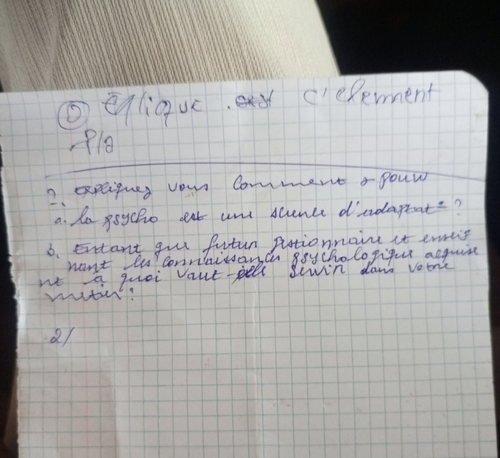 ① Éthique est c'element
P/a
2. expliquez vous comment & pour
a. la psycho est une science d'adaptat° ?
b. Entant que futur gestionnaire et enseig
nant les connaissances psychologique acquise
nt à quoi vaut-elle servir dans votre
metier?
2/